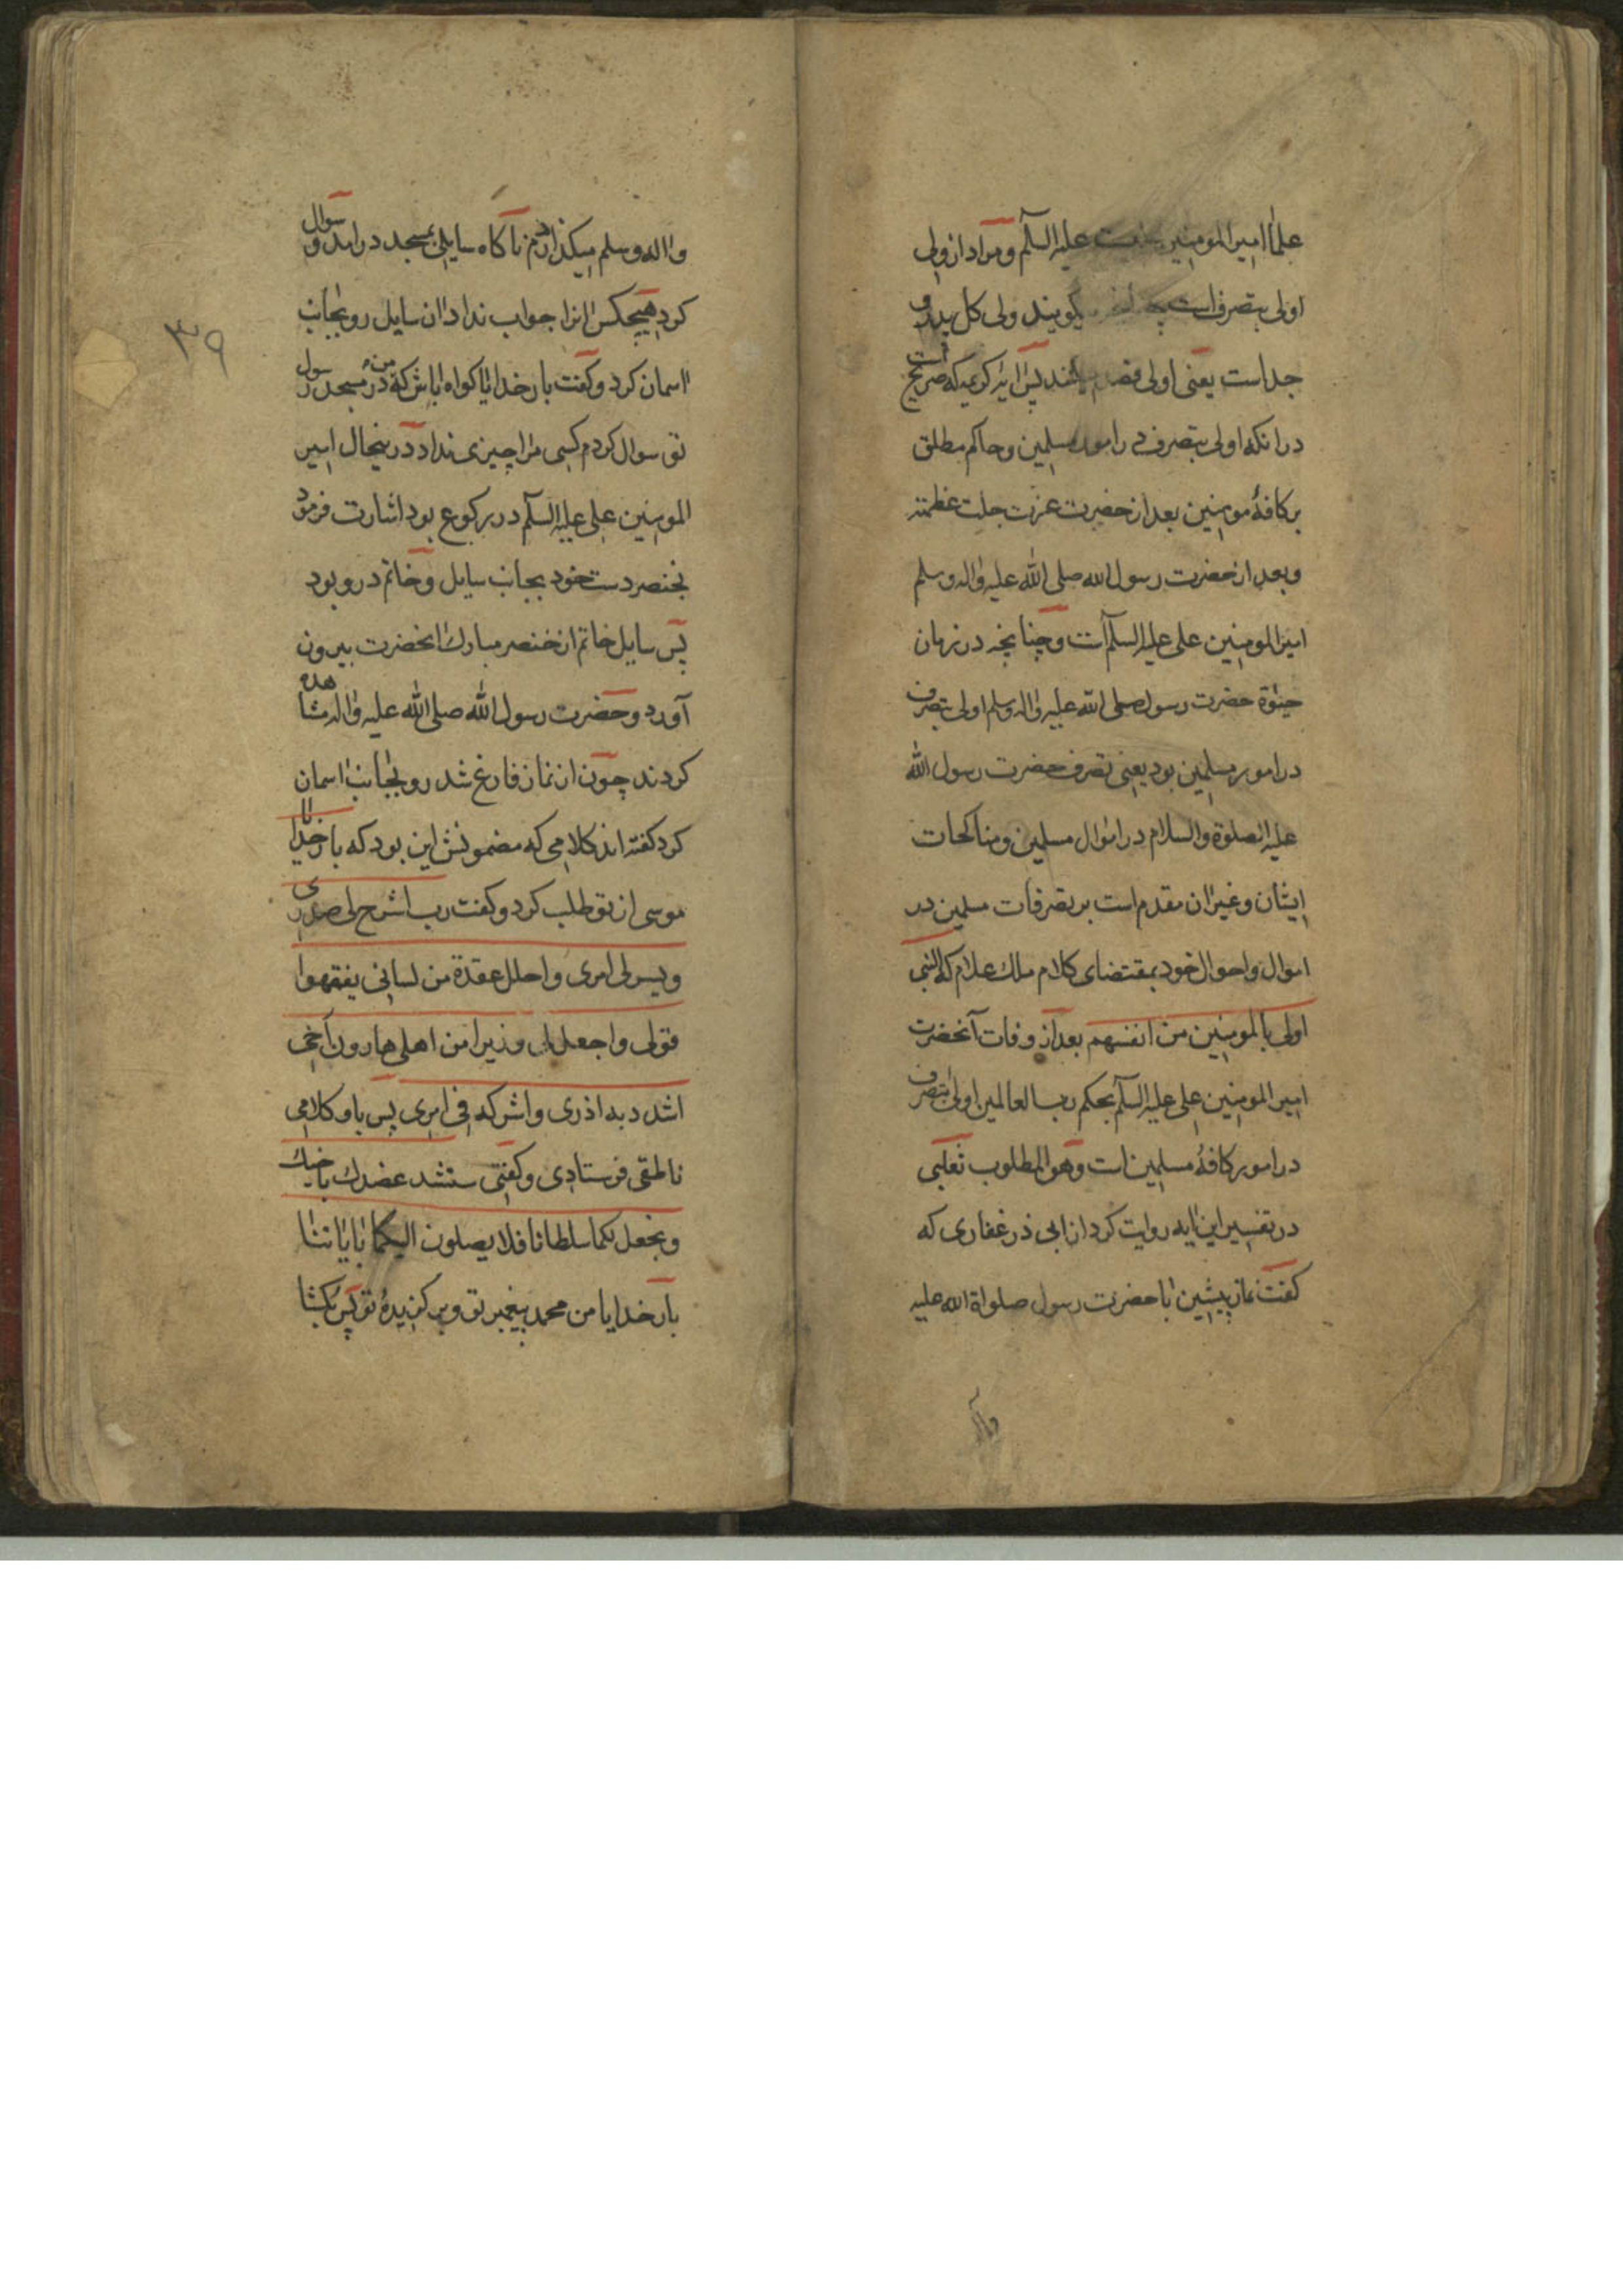 علما امیر المومنین علیه السلم و مراد از ولی
اولی بتصرف است کویند ولی کل پدر و
جد است یعنی اولی پس ایه کریمه که صریح است
در انکه اولی بتصرف در امور مسلمین و حاکم مطلق
بر کافهٔ مومنین بعد از حضرت عزت جلت عظمته
و بعد از حضرت رسول الله صلی الله علیه واله وسلم
امیر المومنین علی علیه السلم است و چنانچه در زمان
حیوة حضرت رسول صلی الله علیه واله وسلم اولی بتصرف
در امور مسلمین بود یعنی تصرف حضرت رسول الله
علیه الصلوة والسلام در اموال مسلمین و مناکحات
ایشان و غیر ان مقدم است بر تصرفات مسلمین در
اموال و احوال خود بمقتضای کلام ملک علام که النبی
اولی بالمومنین من انفسهم بعد از وفات آنحضرت
امیر المومنین علی علیه السلم بحکم رب العالمین اولی بتصرف
در امور کافهٔ مسلمین است و هو المطلوب ثعلبی
در تفسیر این ایه روایت کرد از ابی ذر غفاری که
کفت نماز پیشین با حضرت رسول صلواة الله علیه
واله
۳۹
واله وسلم میکذاردم ناکاه سایلی بمسجد درامد و سوال
کرد هیچکس انرا جواب نداد ان سایل رو بجانب
اسمان کرد و کفت بار خدایا کواه باش که من در مسجد رسول
تو سوال کردم کسی مرا چیزی نداد درینحال امیر
المومنین علی علیه السلم در رکوع بود اشارت فرمود
بخنصر دست خود بجانب سایل و خاتم درو بود
پس سایل خاتم از خنصر مبارك انحضرت بیرون
آورد و حضرت رسول الله صلی الله علیه واله مشاهده
کردند چون از نماز فارغ شد رو بجانب اسمان
کرد کفته اند کلامی که مضمونش این بود که بار خدایا
موسی از تو طلب کرد و کفت رب اشرح لی صدری
ویسر لی امری واحلل عقدة من لسانی یفقهوا
قولی واجعل لی وزیرا من اهلی هارون اخی
اشدد به ازری واشرکه فی امری پس باو کلامی
ناطق فرستادی و کفتی سنشد عضدك باخیك
ونجعل لکما سلطانا فلا یصلون الیکما بایاتنا
بار خدایا من محمد پیغمبر تو و بر کزیدهٔ تو پس بکشا